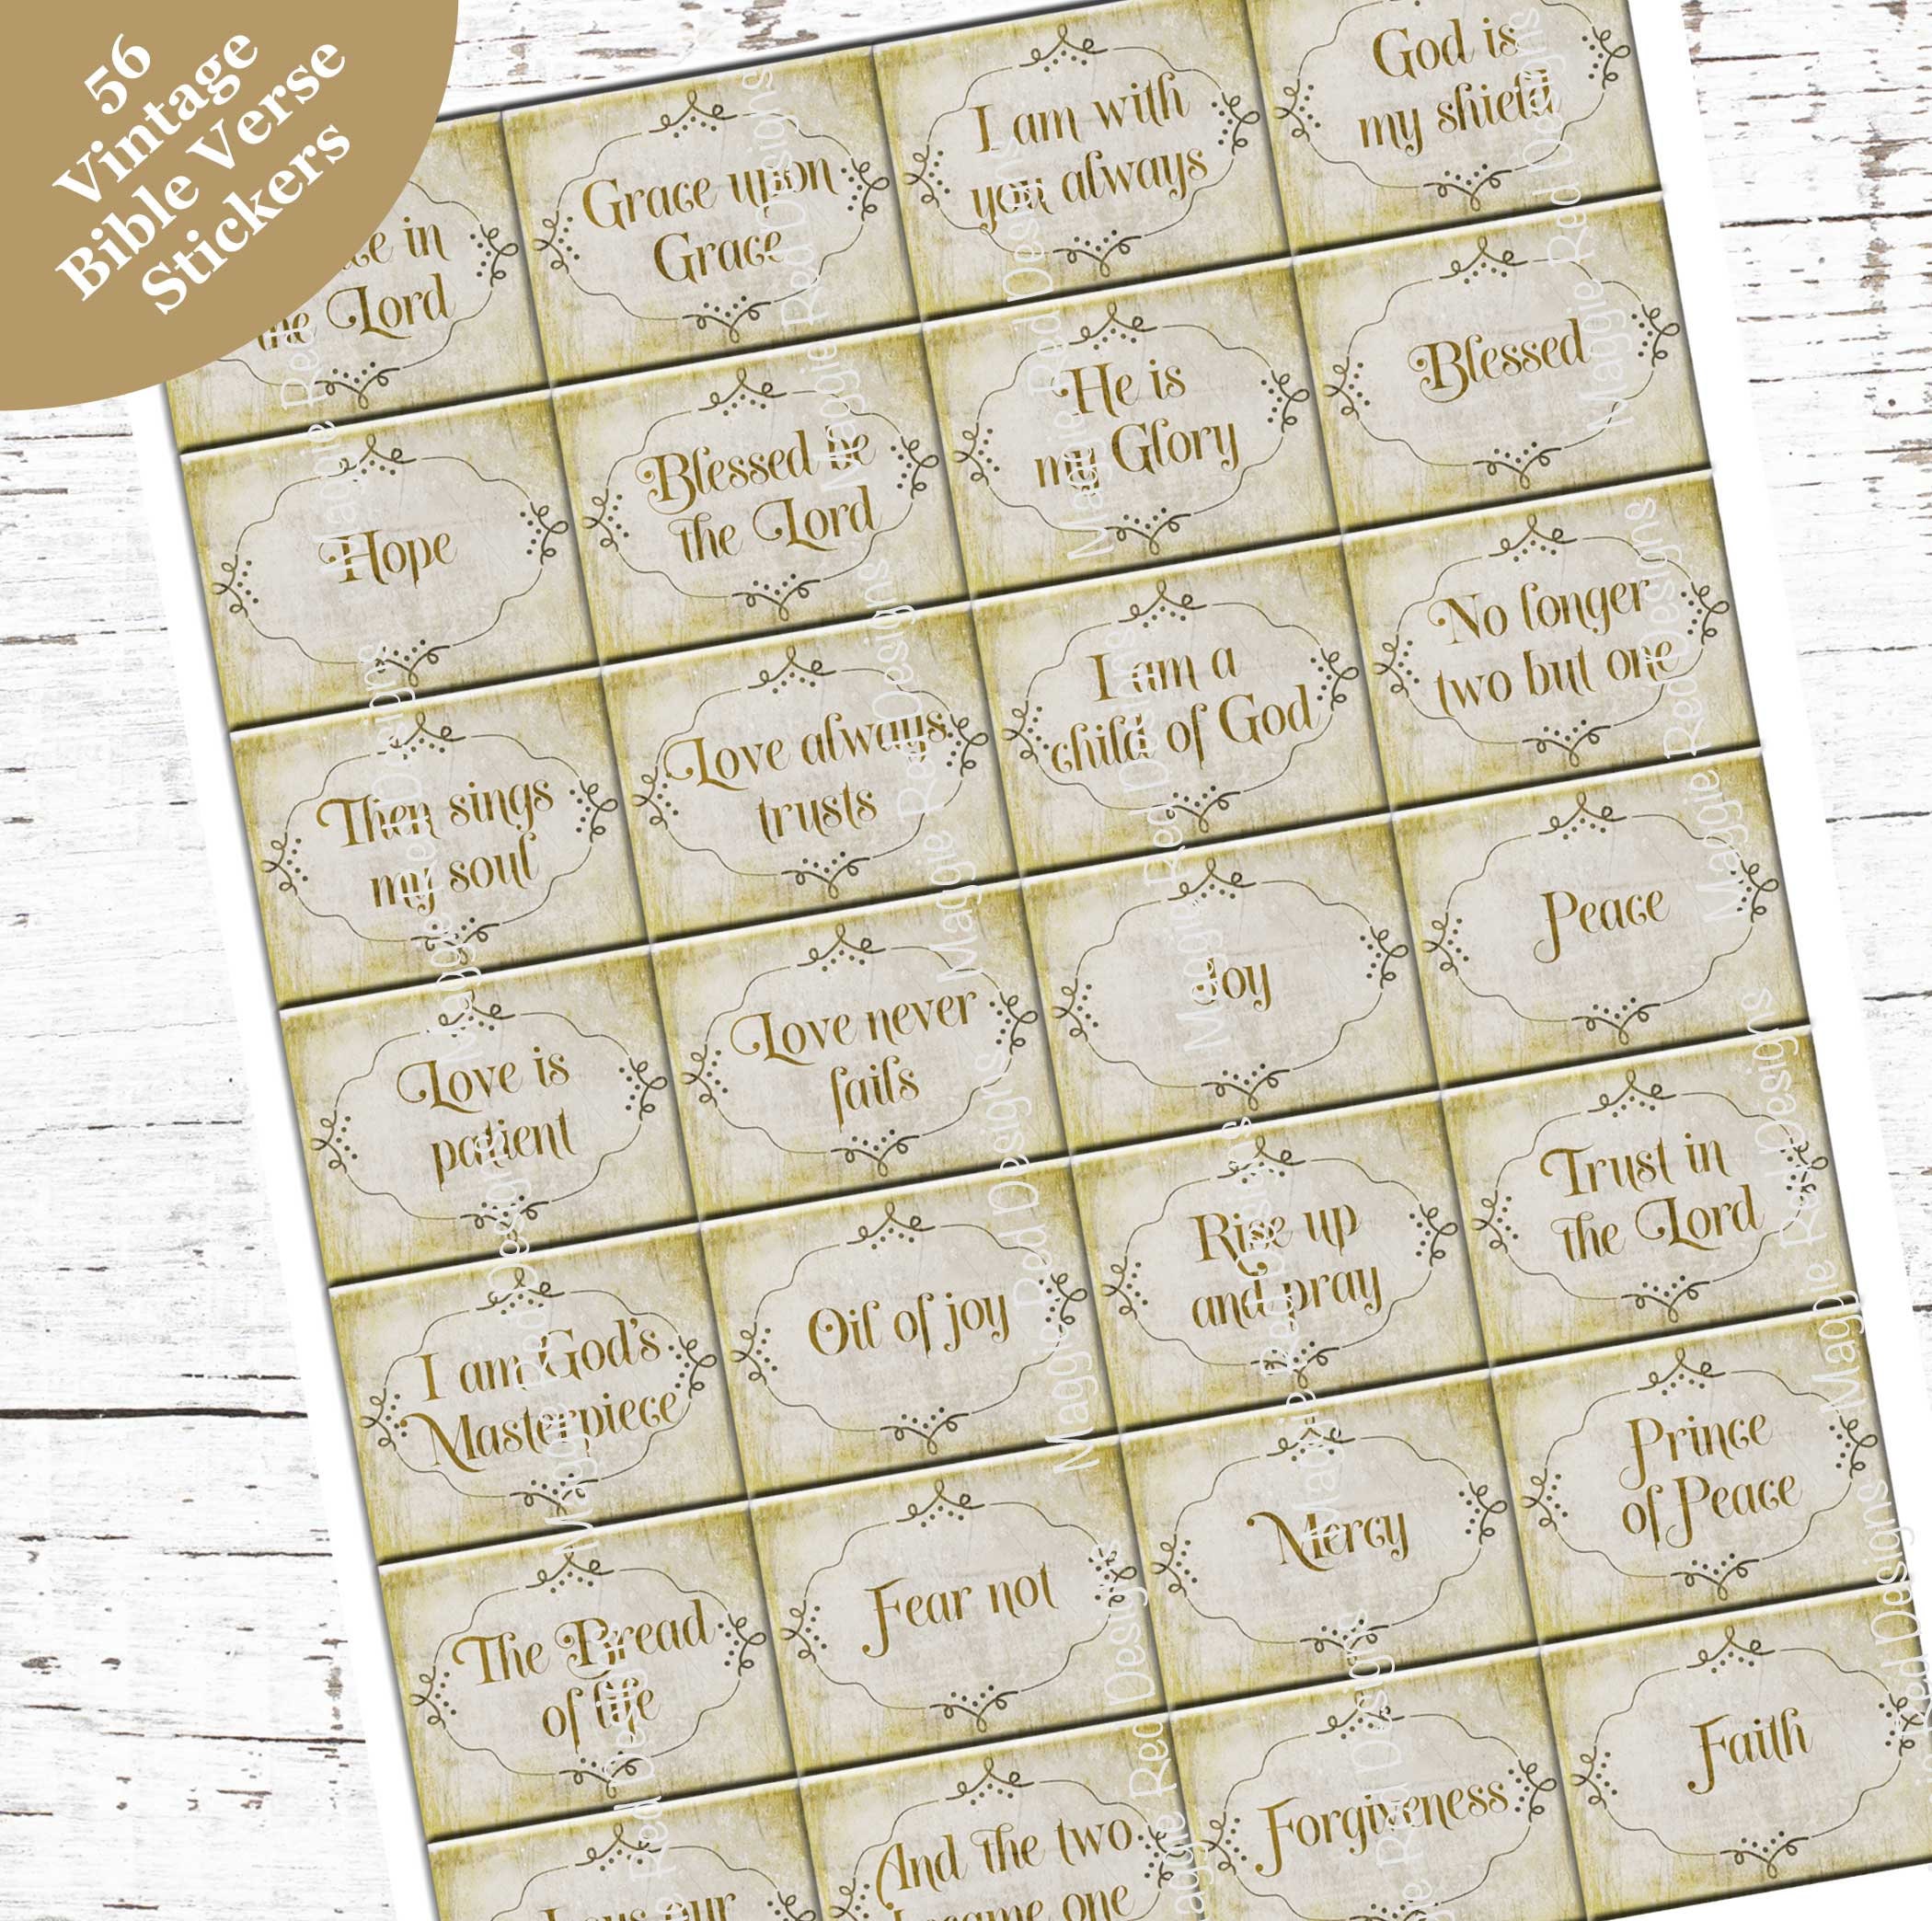 56
Vintage
Bible Verse
Stickers
in
the Lord
Grace upon
Grace
I am with
you always
God is
my shield
Hope
Blessed be
the Lord
He is
my Glory
Blessed
Then sings
my soul
Love always
trusts
I am a
child of God
No longer
two but one
Love is
patient
Love never
fails
Joy
Peace
I am God's
Masterpiece
Oil of joy
Rise up
and pray
Trust in
the Lord
The Bread
of life
Fear not
Mercy
Prince
of Peace
our
And the two
became one
Forgiveness
Faith
Maggie Red Designs
Maggie Red Designs
Maggie Red Designs
Maggie Red Designs